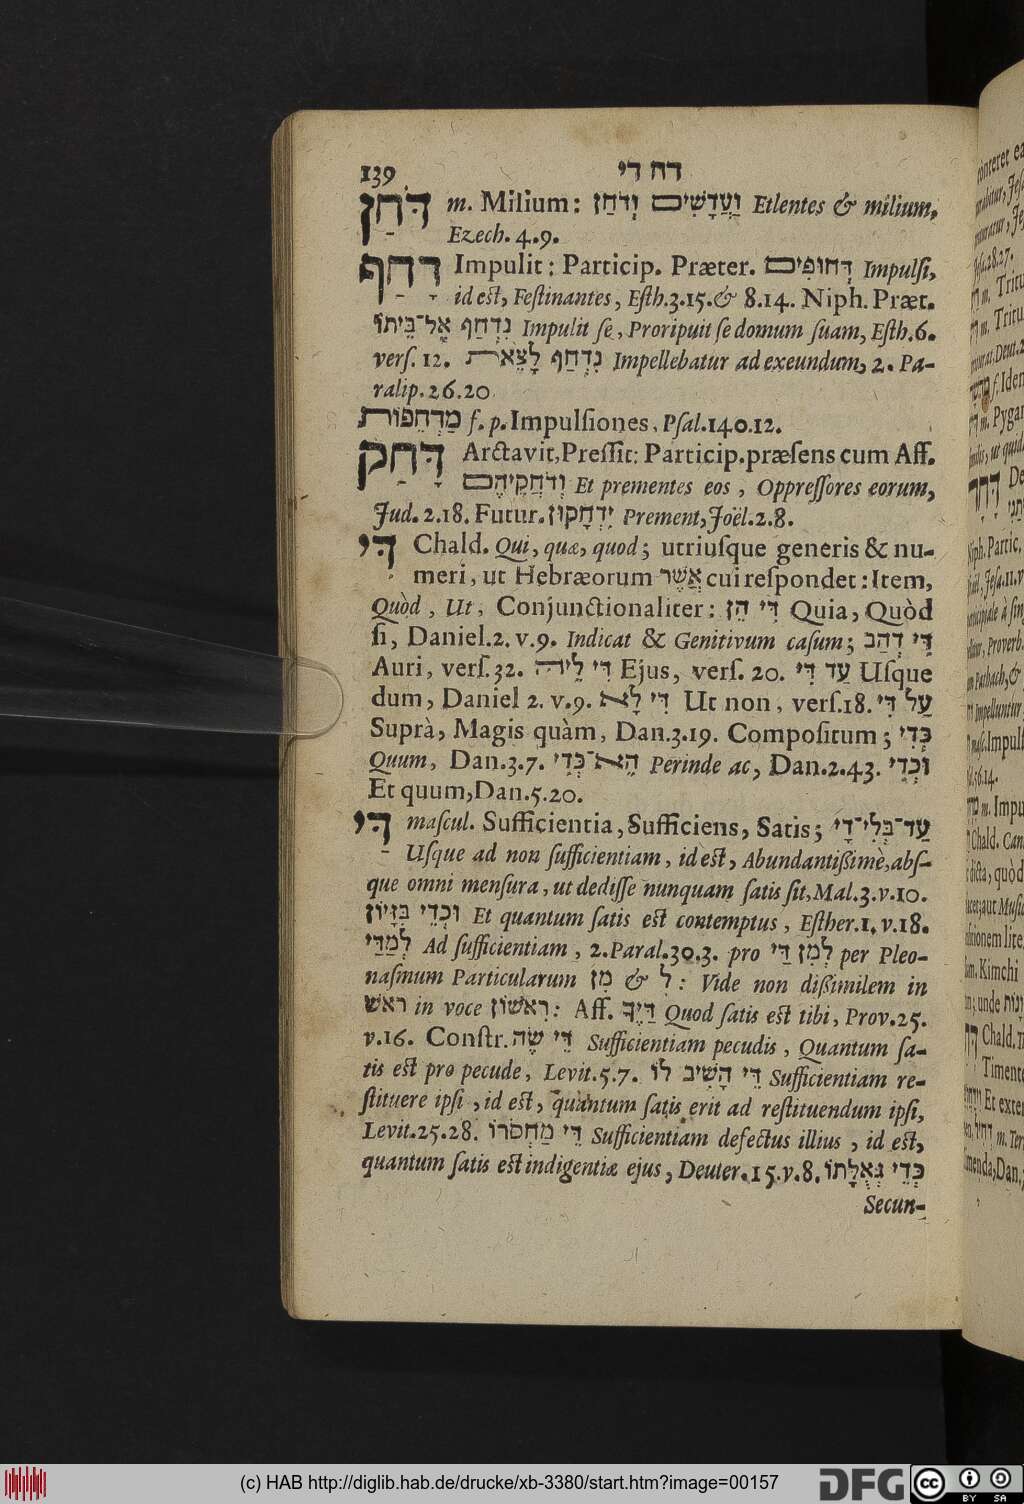 139 דח די
דֹּחַן m. Milium: וַעֲדָשִׁים וְדֹחַן Et lentes & milium,
Ezech. 4.9.
דָּחַף Impulit: Particip. Præter. דְּחוּפִים Impulſi,
id eſt, Feſtinantes, Eſth.3.15.& 8.14. Niph. Præt.
נִדְחַף אֶל־בֵּיתוֹ Impulit ſe, Proripuit ſe domum ſuam, Eſth.6.
verſ. 12. נִדְחַף לָצֵאת Impellebatur ad exeundum, 2. Pa-
ralip.26.20
מַדְחֵפוֹת f. p. Impulſiones, Pſal.140.12.
דָּחַק Arctavit, Preſſit: Particip. præſens cum Aff.
וְדֹחֲקֵיהֶם Et prementes eos, Oppreſſores eorum,
Jud.2.18. Futur. יִדְחָקוּן Prement, Joël.2.8.
דִּי Chald. Qui, quæ, quod; utriuſque generis & nu-
meri, ut Hebræorum אֲשֶׁר cui reſpondet: Item,
Quòd, Ut, Conjunctionaliter: דִּי הֵן Quia, Quòd
ſi, Daniel.2.v.9. Indicat & Genitivum caſum; דִּי דְהַב
Auri, verſ.32. דִּי לֵיהּ Ejus, verſ. 20. עַד דִּי Uſque
dum, Daniel 2. v.9. דִּי לָא Ut non, verſ.18. עַל דִּי
Suprà, Magis quàm, Dan.3.19. Compoſitum; כְּדִי
Quum, Dan.3.7. הֵא־כְּדִי Perinde ac, Dan.2.43. וּכְדִי
Et quum, Dan.5.20.
דַּי maſcul. Sufficientia, Sufficiens, Satis; עַד־בְּלִי־דָי
Uſque ad non ſufficientiam, id eſt, Abundantißimè, abſ-
que omni menſura, ut dediſſe nunquam ſatis ſit, Mal.3.v.10.
וּכְדַי בִּזָּיוֹן Et quantum ſatis eſt contemptus, Eſther.1.v.18.
לְמַדַּי Ad ſufficientiam, 2.Paral.30.3. pro לְמִן דַּי per Pleo-
naſmum Particularum מִן & לְ: Vide non dißimilem in
ראשׁ in voce רִאשׁוֹן: Aff. דַּיֶּךָּ Quod ſatis eſt tibi, Prov.25.
v.16. Conſtr. דֵּי שֶׂה Sufficientiam pecudis, Quantum ſa-
tis eſt pro pecude, Levit.5.7. דֵּי הָשִׁיב לוֹ Sufficientiam re-
ſtituere ipſi, id eſt, quantum ſatis erit ad reſtituendum ipſi,
Levit.25.28. דֵּי מַחְסֹרוֹ Sufficientiam defectus illius, id eſt,
quantum ſatis eſt indigentiæ ejus, Deuter.15.v.8. כְּדֵי גְאֻלָּתוֹ
Secun-
(c) HAB http://diglib.hab.de/drucke/xb-3380/start.htm?image=00157
DFG
cc BY SA